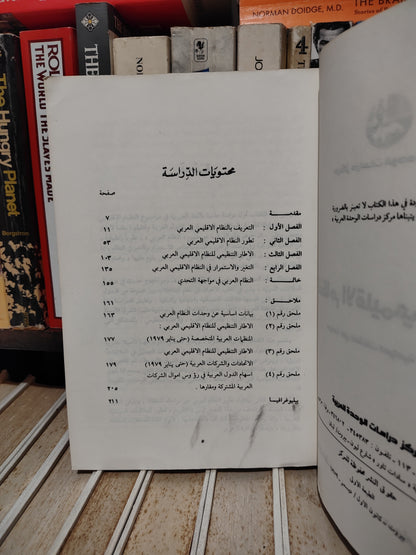 NORMAN DOIDGE, M.D.
THE BRA
The Hungry Planet
Borgstrom
THE WORLD THE SLAVES MADE
محتويات الدراسة
صفحة
مقدمة ٧
الفصل الأول : التعريف بالنظام الاقليمي العربي ١١
الفصل الثاني : تطور النظام الاقليمي العربي ٥٣
الفصل الثالث : الاطار التنظيمي للنظام الاقليمي العربي ١٠٣
الفصل الرابع : التغير والاستمرار في النظام الاقليمي العربي ١٣٥
خاتمة : النظام العربي في مواجهة التحدي ١٥٥
ملاحق : ١٦١
ملحق رقم (١) بيانات اساسية عن وحدات النظام العربي ١٦٣
ملحق رقم (٢) الاطار التنظيمي للنظام الاقليمي العربي
المنظمات العربية المتخصصة (حتى يناير ١٩٧٩) ١٧٧
ملحق رقم (٣) الاطار التنظيمي للنظام الاقليمي العربي
الاتحادات والشركات العربية (حتى يناير ١٩٧٩) ١٧٩
ملحق رقم (٤) اسهام الدول العربية في رؤوس اموال الشركات
العربية المشتركة ومقارها . ٢٠٥
بيليوغرافيا ٢١١
ة في هذا الكتاب لا تعبر بالضرورة
يتبناها مركز دراسات الوحدة العربية »
ركز دراسات الوحدة العربية
حقوق النشر محفوظة للمركز
الطبعة الأولى